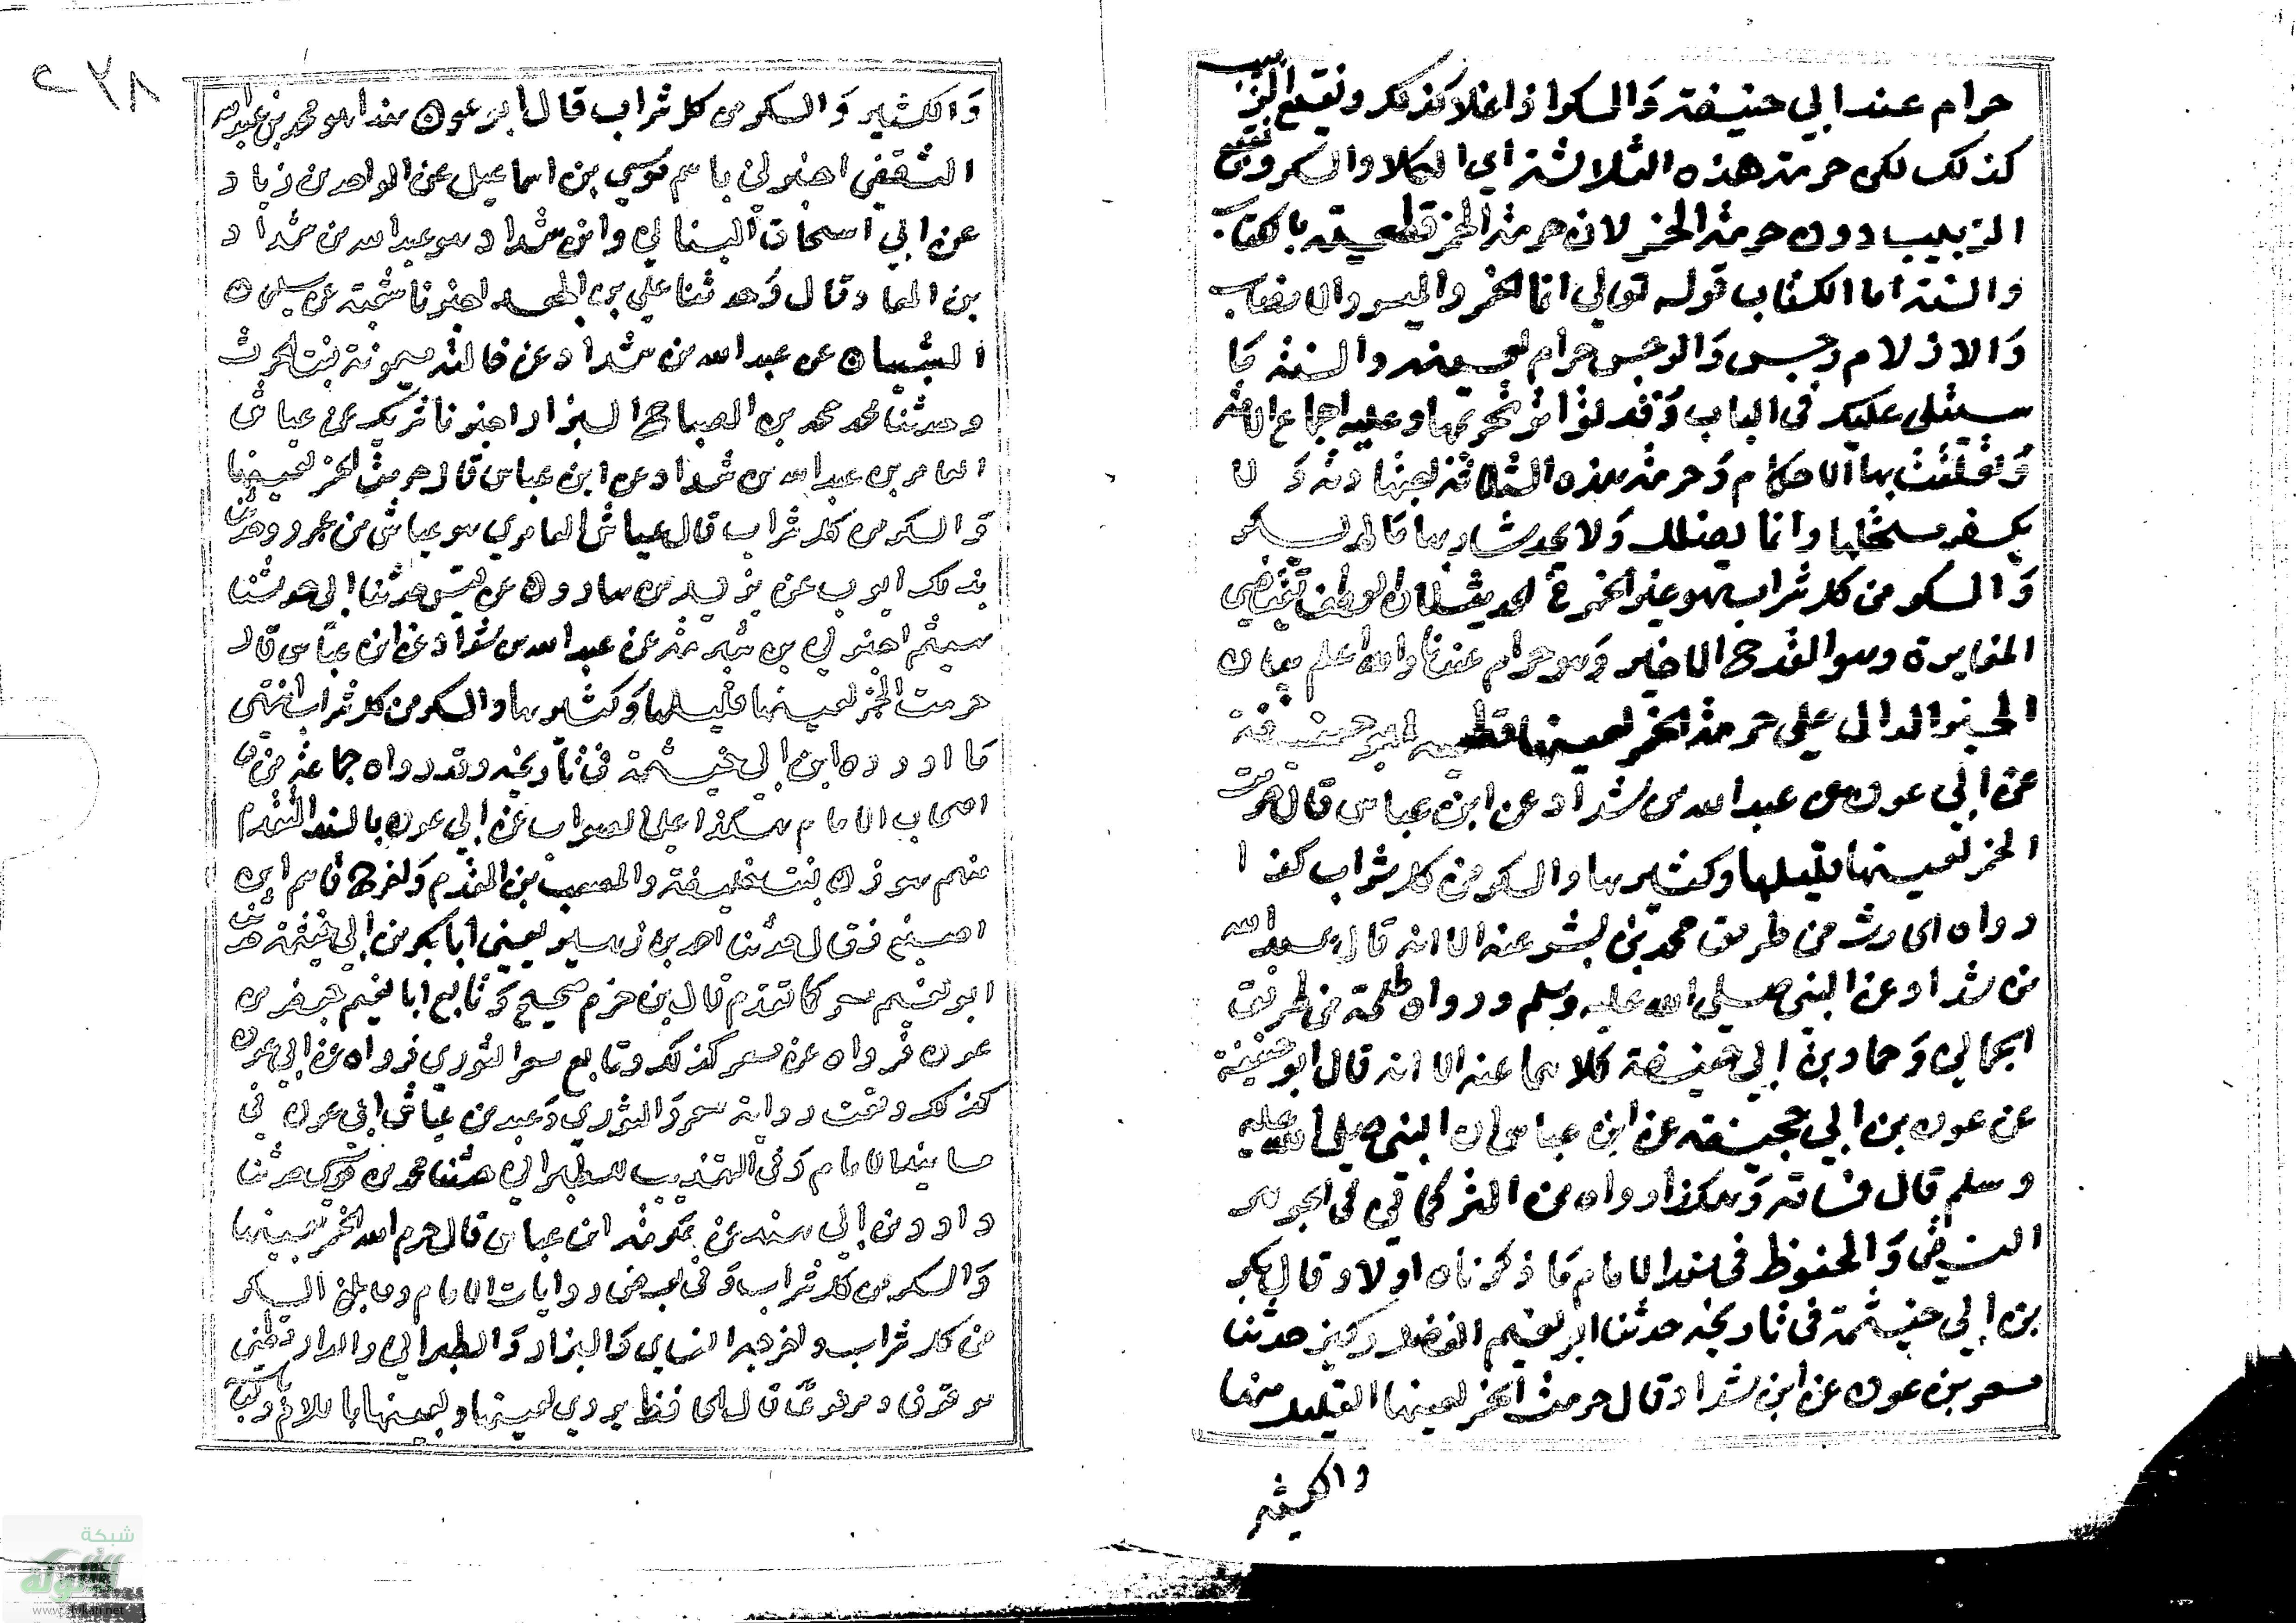 حرام عند ابي حنيفة والسكر اذا غلا كذلك ونقيع الزبيب
كذلك لكن حرمة هذه الثلاثة اي الطلا والسكر ونقيع
الزبيب دون حرمة الخمر لان حرمة الخمر قطعية بالكتاب
والسنة اما الكتاب قوله تعالي انما الخمر والميسر والانصاب
والازلام رجس والرجس حرام لعينه والسنة ما
ستتلى عليك في الباب وقد تواتر تحريمها وعليه اجماع الامة
وتعلقت بها الاحكام وحرمة هذه الثلاثة اجتهادية ولا
يكفر مستحلها وانما يضلل ولا يحد شاربها مالم يسكر
والسكر من كل شراب هو غير الخمر في الحديث لان العطف تقتضي
المغايرة وهو القدح الاخير وهو حرام عندنا والله اعلم بيان
الخبر الدال علي حرمة الخمر لعينها قطعية ابو حنيفة
عن ابي عون عن عبد الله بن شداد عن ابن عباس قال حرمت
الخمر لعينها قليلها وكثيرها والسكر من كل شراب كذا
رواه الحارث من طريق محمد بن بشر عنه الا انه قال عبد الله
بن شداد عن النبي صلي الله عليه وسلم ورواه طلحة من طريق
الحماني وحماد بن ابي حنيفة كلاهما عنه الا انه قال ابو حنيفة
عن عون بن ابي جحيفة عن ابن عباس ان النبي صلي الله عليه
وسلم قال فساقه وهكذا رواه بن التركماني في الجوهر
النقي والمحفوظ في هذا للامام ما ذكرناه اولا وقال بكر
بن ابي خيثمة في تاريخه حدثنا ابو نعيم الفضل دكين حدثنا
مسعر بن عون عن ابن شداد قال حرمت الخمر لعينها القليل منها
والكثير
٢٢٨
والكثير والسكر من كل شراب قال ابو عون هذا هو محمد بن عبيد الله
الثقفي اخبرني باسم موسي بن اسماعيل عن الواحد بن زياد
عن ابي اسحاق البناني وابن شداد هو عبد الله بن شداد
بن الهاد وقال وحدثنا علي بن الجعد اخبرنا شعبة عن سليمان
الشيبان عن عبد الله بن شداد عن خالته ميمونة بنت الحرث
وحدثنا محمد محمد بن الصباح البزار اخبرنا شريك عن عياش
العامر بن عبد الله بن شداد عن ابن عباس قال حرمت الخمر لعينها
والسكر من كل شراب قال عياش العامري هو عياش بن عمرو وحدثنا
بذلك ايوب عن يزيد بن هارون عن قيس حدثنا ابي حدثنا
هيثم اخبرني بن شبرمة عن عبد الله بن شداد عن ابن عباس قال
حرمت الخمر لعينها قليلها وكثيرها والسكر من كل شراب انتهي
ما اورده ابن ابي خيثمة في تاريخه وقد رواه جماعة من
اصحاب الامام هكذا علي الصواب عن ابي عون بالسند المتقدم
منهم هوذة بنت خليفة والمصعب بن المقدم واخرج قاسم ابن
اصبغ فقال حدثنا احمد بن زهير يعني ابا بكر بن ابي خيثمة حدثنا
ابو نعيم هو كما تقدم قال بن حزم صحيح وتابع ابا نعيم جعفر بن
عون فرواه عن مسعر كذلك وتابع مسعر الثوري فرواه عن ابي عون
كذلك وقعت رواية مسعر والثوري وعبد بن عياش ابي عون في
مسانيد الامام وفي التهذيب للطبراني حدثنا محمد بن موسي حدثنا
داود بن ابي هند عن عكرمة ابن عباس قال حرم الله الخمر بعينها
والسكر من كل شراب وفي بعض روايات الامام وما بلغ السكر
من كل شراب واخرجه النساي والبزار والطبراني والدارقطني
موقوف ومرفوعا قال الحافظ يروي لعينها وبعينها باللام وبالباء